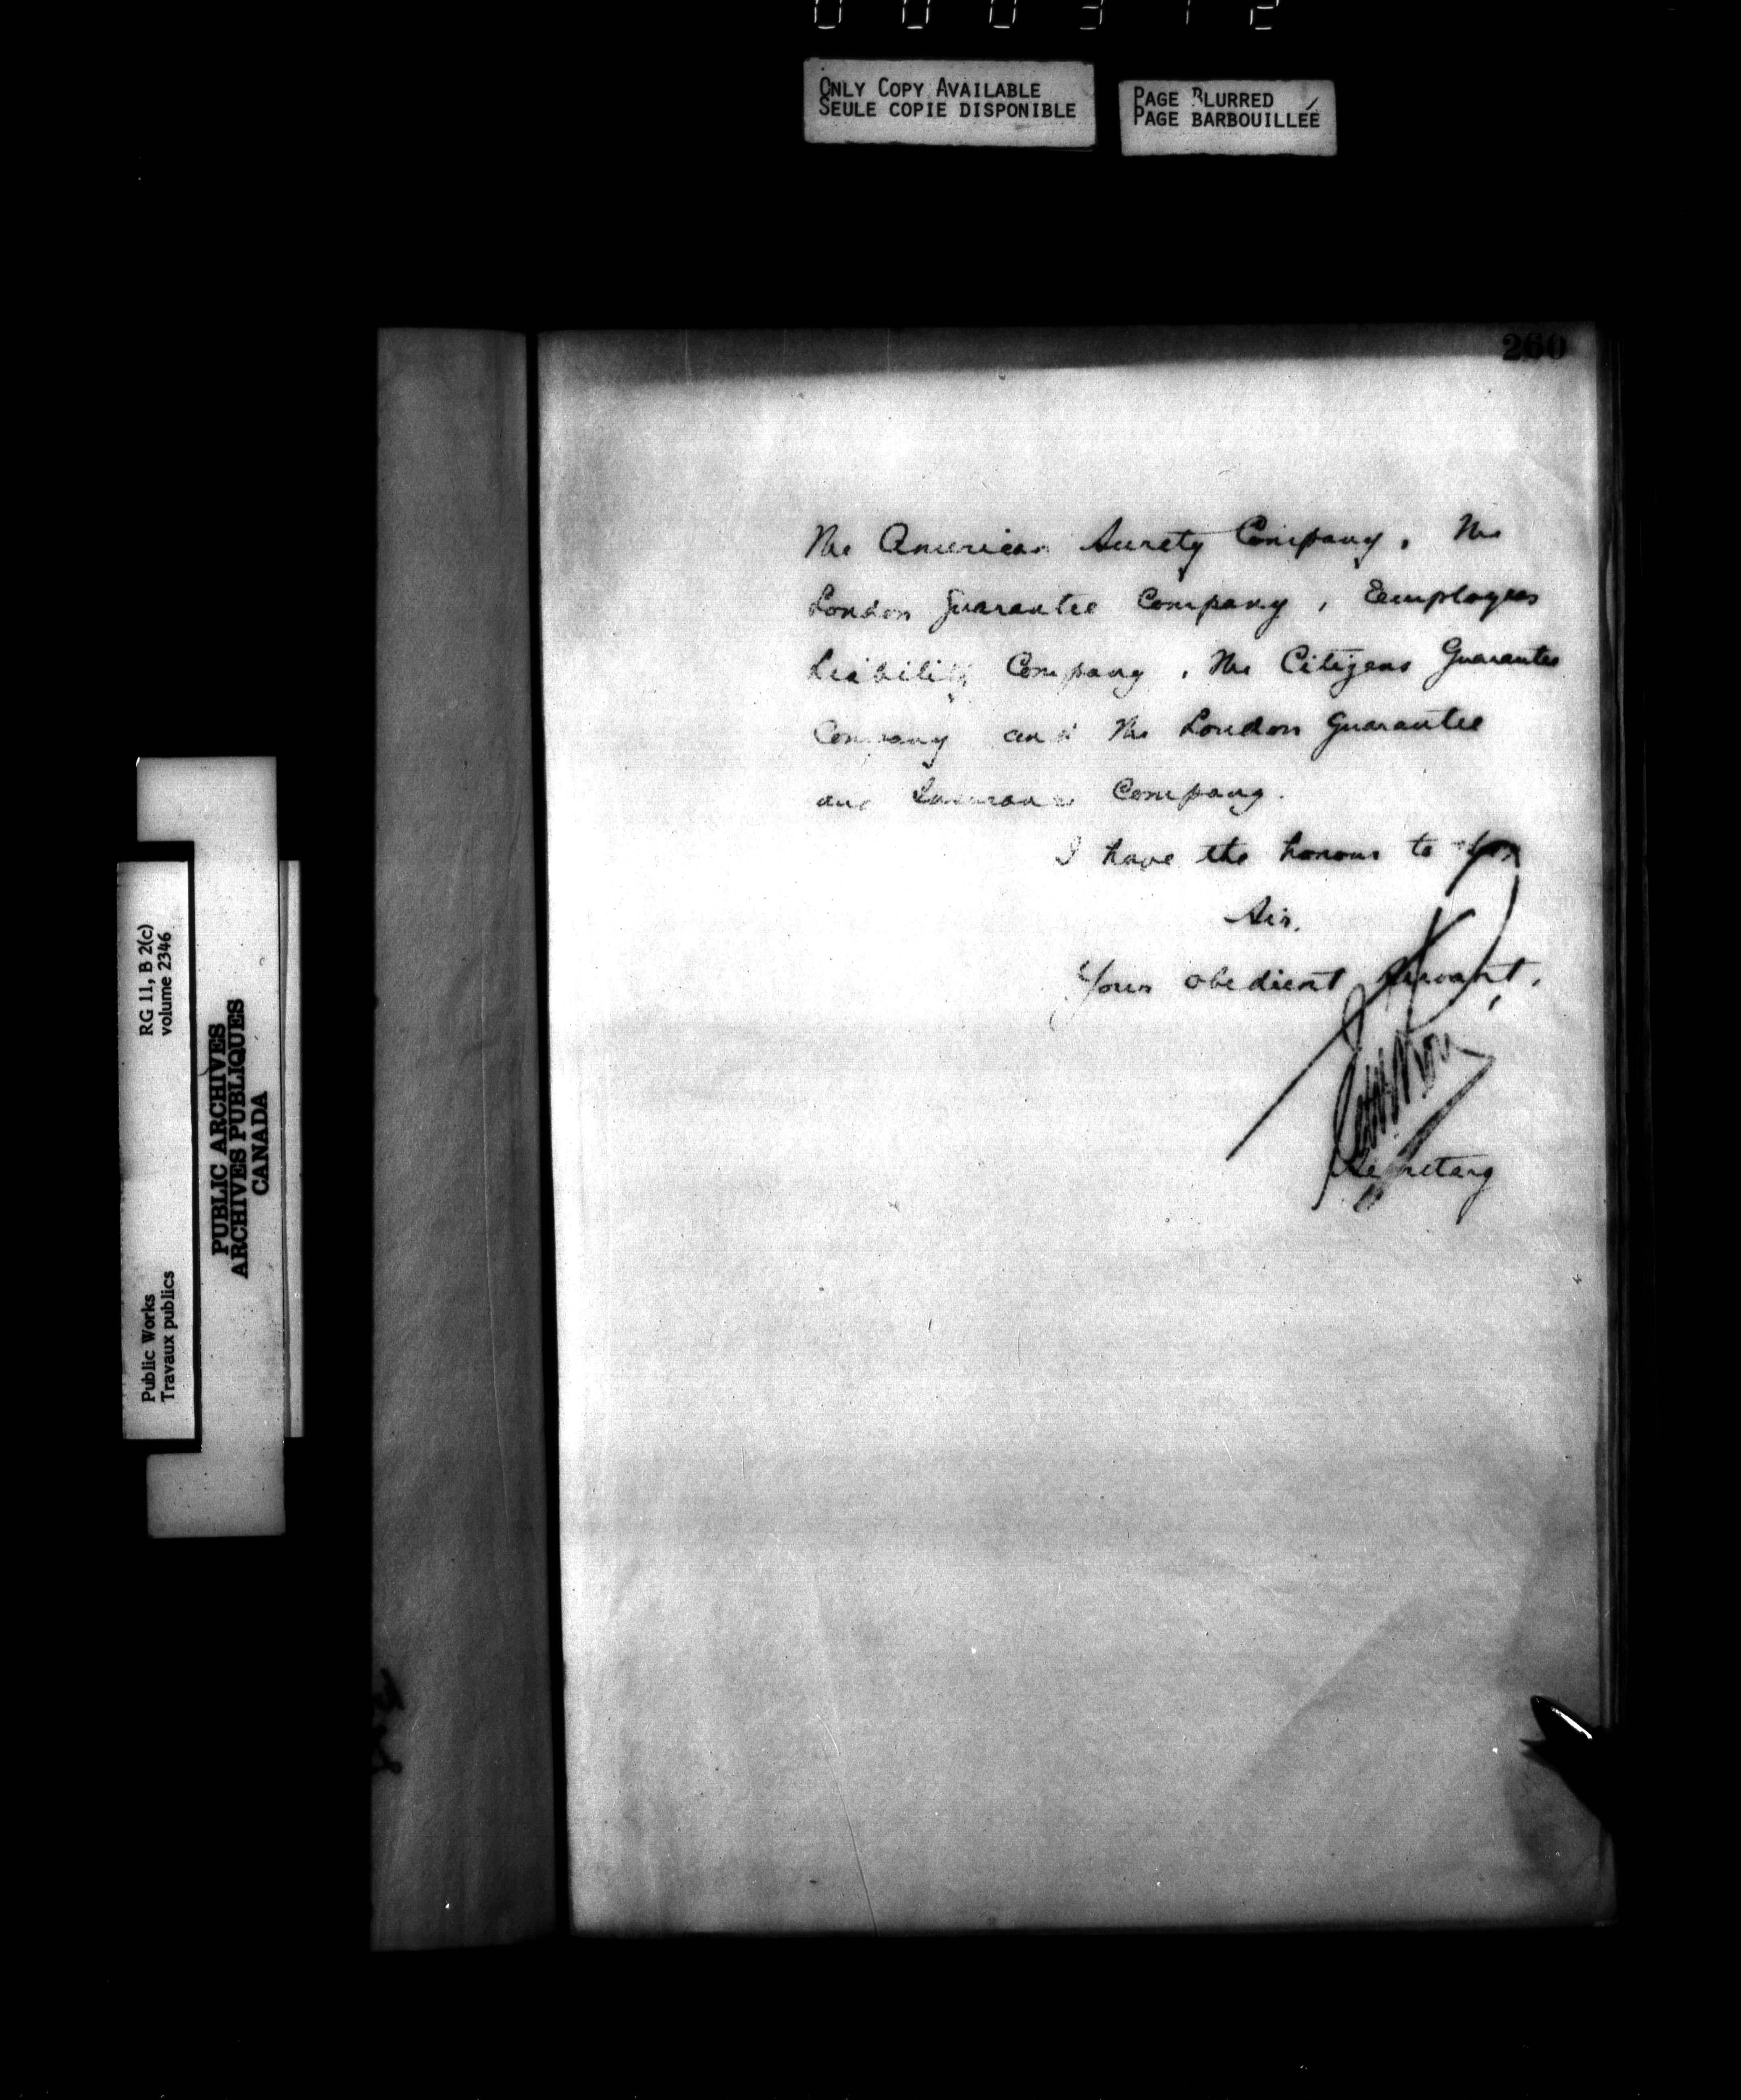 000312
ONLY COPY AVAILABLE
SEULE COPIE DISPONIBLE
PAGE BLURRED
PAGE BARBOUILLÉE
260
The American Surety Company, The
London Guarantee Company, Employees
Liability Company, The Citizens Guarantee
Company and The London Guarantee
and Insurance Company.
I have the honour to
Sir,
Your obedient servant,
Secretary
RG 11, B 2(c)
volume 2346
Public Works
Travaux publics
PUBLIC ARCHIVES
ARCHIVES PUBLIQUES
CANADA